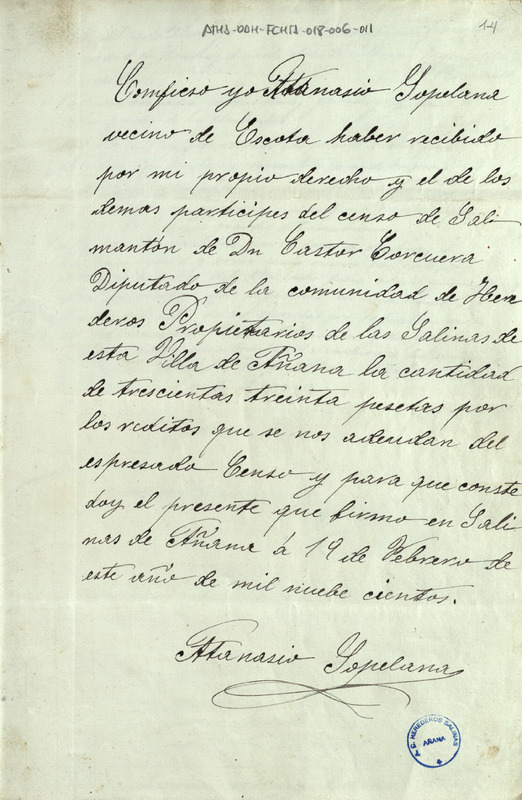 ATHA-DAH-FCHTA-018-006-011
14
Comficso yo Atanasio Sopelana
vecino de Escota haber recibido
por mi propio derecho y el de los
demas participes del censo de Sali
mantón de Dn Castor Corcuera
Diputado de la comunidad de Here
deros Propietarios de las Salinas de
esta Villa de Añana la cantidad
de trescientas treinta pesetas por
los reditos que se nos adeudan del
espresado Censo y para que conste
doy el presente que firmo en Sali
nas de Añana á 19 de Febrero de
este año de mil nuebe cientos.
Atanasio Sopelana
HEREDEROS SALINAS
AÑANA